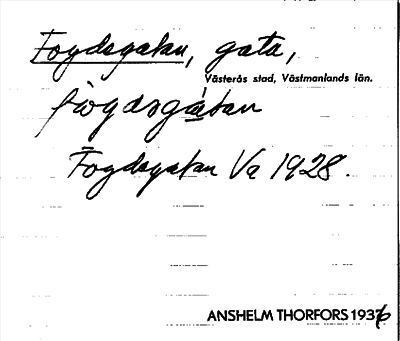 Fogdsgatan, gata,
Västerås stad, Västmanlands län.
fωgdsgàtan
Fogdsgatan Va 1928.
ANSHELM THORFORS 1936